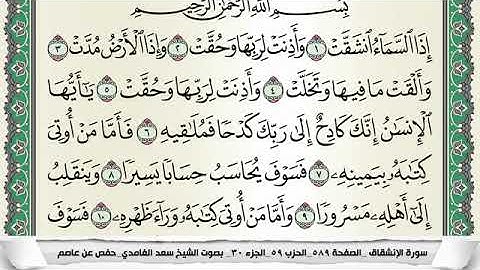 بِسْمِ اللَّهِ الرَّحْمَٰنِ الرَّحِيمِ
إِذَا السَّمَاءُ انشَقَّتْ ١ وَأَذِنَتْ لِرَبِّهَا وَحُقَّتْ ٢ وَإِذَا الْأَرْضُ مُدَّتْ ٣
وَأَلْقَتْ مَا فِيهَا وَتَخَلَّتْ ٤ وَأَذِنَتْ لِرَبِّهَا وَحُقَّتْ ٥ يَٰأَيُّهَا
الْإِنسَٰنُ إِنَّكَ كَادِحٌ إِلَىٰ رَبِّكَ كَدْحًا فَمُلَٰقِيهِ ٦ فَأَمَّا مَنْ أُوتِيَ
كِتَٰبَهُۥ بِيَمِينِهِۦ ٧ فَسَوْفَ يُحَاسَبُ حِسَابًا يَسِيرًا ٨ وَيَنقَلِبُ
إِلَىٰ أَهْلِهِۦ مَسْرُورًا ٩ وَأَمَّا مَنْ أُوتِيَ كِتَٰبَهُۥ وَرَاءَ ظَهْرِهِۦ ١٠ فَسَوْفَ
سورة الإنشقاق _الصفحة ٥٨٩_ الحزب ٥٩ _الجزء ٣٠_ بصوت الشيخ سعد الغامدي_ حفص عن عاصم